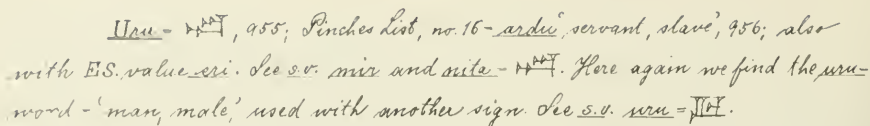 Uru - , 955; Pinches List, no. 16 - ardu, 'servant, slave', 956; also
with ES. value eri. See s.v. mir and nita - . Here again we find the uru-
word - 'man, male,' used with another sign. See s.v. uru = .